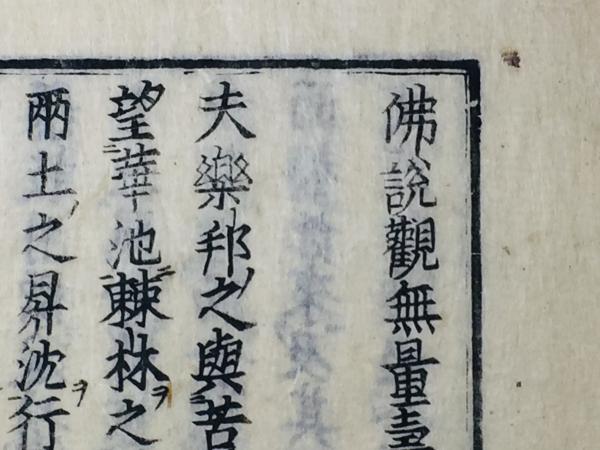 佛說觀無量壽
夫樂邦之與苦
望華池棘林之
兩土之昇沈行